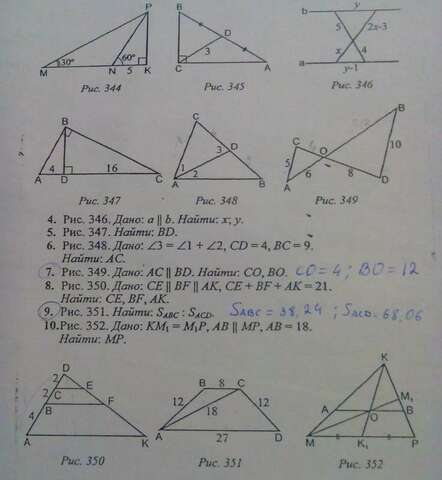 P
30°
60°
M
N
5
K
Рис. 344
B
D
3
C
A
Рис. 345
b
y
5
2x-3
x
4
a
y-1
Рис. 346
B
4
16
A
D
C
Рис. 347
C
3
D
1
2
A
B
Рис. 348
B
C
O
10
5
6
8
A
D
Рис. 349
4. Рис. 346. Дано: a || b. Найти: x; y.
5. Рис. 347. Найти: BD.
6. Рис. 348. Дано: ∠3 = ∠1 + ∠2, CD = 4, BC = 9.
Найти: AC.
7. Рис. 349. Дано: AC || BD. Найти: CO, BO. CO = 4 ; BO = 12
8. Рис. 350. Дано: CE || BF || AK, CE + BF + AK = 21.
Найти: CE, BF, AK.
9. Рис. 351. Найти: SABC : SACD. SABC = 38,24 ; SACD = 68,06
10. Рис. 352. Дано: KM₁ = M₁P, AB || MP, AB = 18.
Найти: MP.
D
2
E
C
2
B
F
4
A
K
Рис. 350
B
8
C
12
18
12
A
27
D
Рис. 351
K
M₁
A
O
B
M
K₁
P
Рис. 352